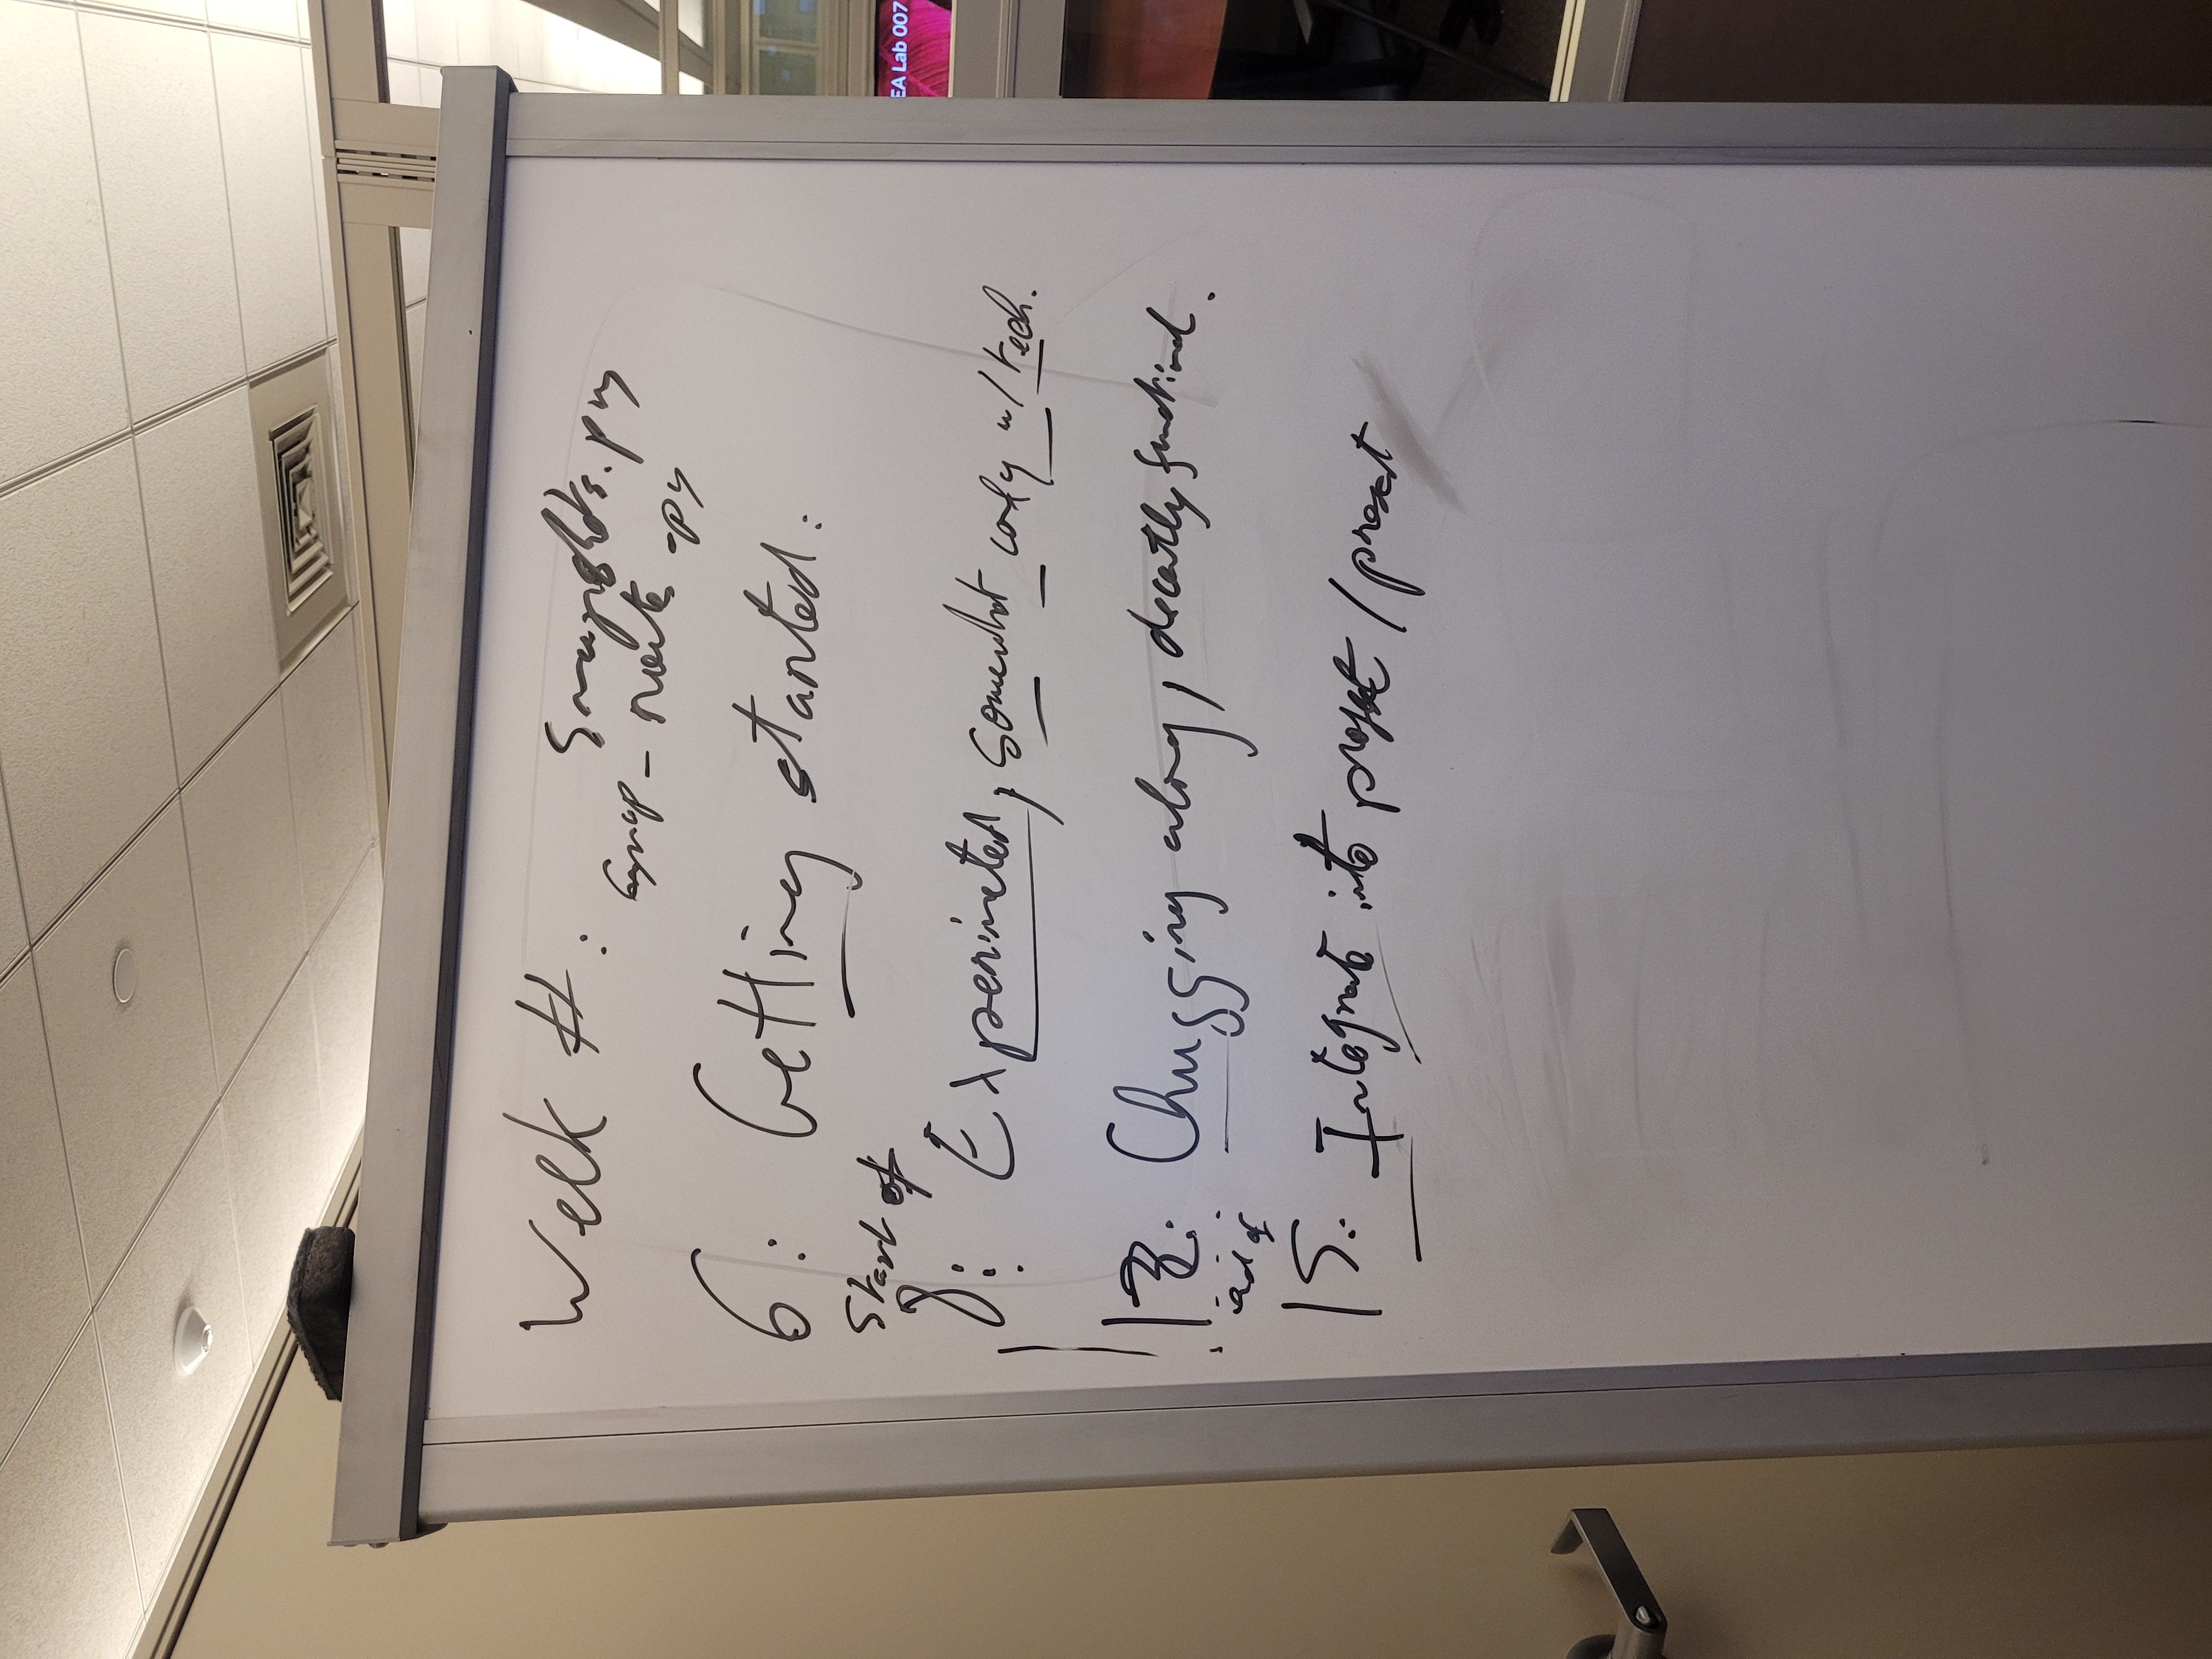 Week #: Snapshots.py
snap_route.py
6: Getting started:
Start of
8: Experimeted, somewhat comfy w/ tech.
12: Chugging along, decently functional.
end of
15: Integrate into project / present
EA Lab 007